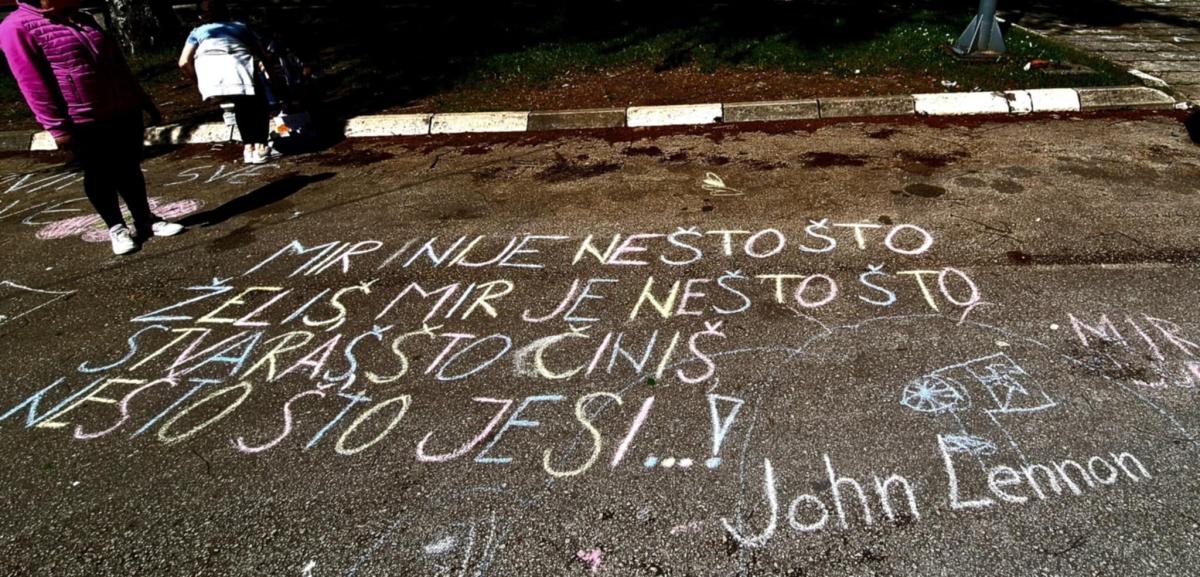 SVE
MIR NIJE NEŠTO ŠTO
ŽELIŠ MIR JE NEŠTO ŠTO
STVARAŠ ŠTO ČINIŠ
NEŠTO ŠTO JESI...!
MIR
John Lennon